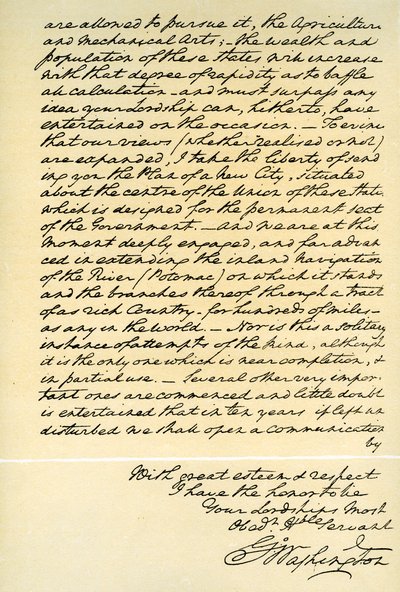 are allowed to pursue it, the Agriculture
and Mechanical Arts;—the wealth and
population of these States will increase
with that degree of rapidity as to baffle
all calculation—and must surpass any
idea your Lordship can, hitherto, have
entertained on the occasion.—To evince
that our views (whether realised or not)
are expanded, I take the liberty of send
ing you the Plan of a New City, situated
about the centre of the Union of these States
which is designed for the permanent seat
of the Government.—And we are at this
moment deeply engaged, and far advan
ced in extending the inland navigation
of the River (Potomac) on which it stands
and the branches thereof through a tract
of as rich Country—for hundreds of miles—
as any in the world.—Nor is this a solitary
instance of attempts of the kind, although
it is the only one which is near completion, &
in partial use.—Several other very impor-
tant ones are commenced and little doubt
is entertained that in ten years if left un
disturbed we shall open a communication
by
With great esteem & respect
I have the honor to be
Your Lordships Most
Obedt Hble Servant
Go Washington